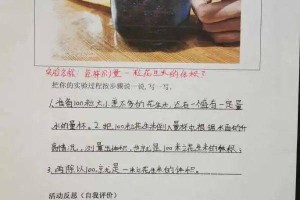 实验名称：怎样测量一粒花生米的体积？
把你的实验过程按步骤说一说，写一写。
1.准备100粒大小差不多的花生米，还有一个装有一定量
水的量杯。2.把100粒花生米倒入量杯中，根据水面的升
高情况，测量出体积，也就是100粒花生米的体积；
3.再除以100，就是一粒花生米的体积。
活动反思（自我评价）